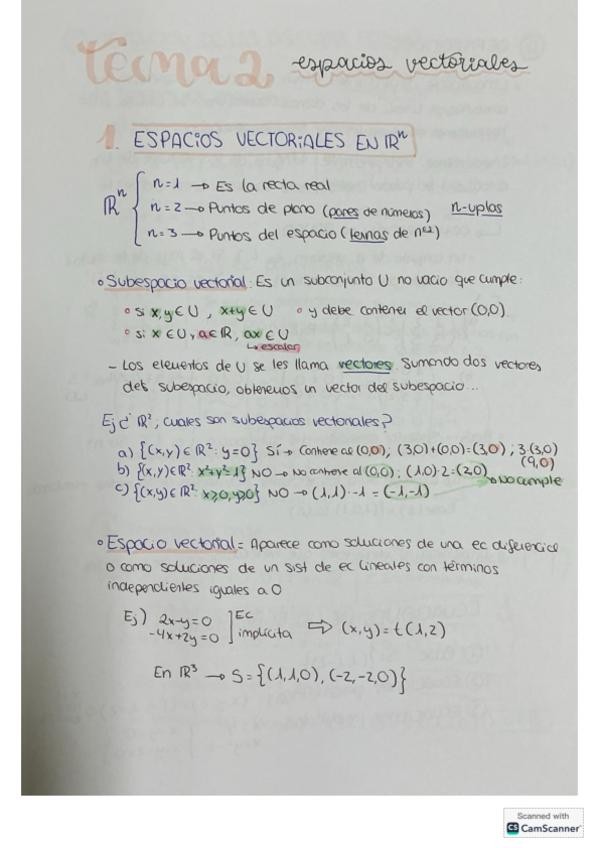 Tema 2 espacios vectoriales
1. ESPACIOS VECTORIALES EN ℝⁿ
ℝⁿ { n=1 → Es la recta real
n=2 → Puntos de plano (pares de números) n-uplas
n=3 → Puntos del espacio (ternas de nos)
◦ Subespacio vectorial: Es un subconjunto U no vacio que cumple:
◦ si x,y ∈ U , x+y ∈ U ◦ y debe contener el vector (0,0).
◦ si x ∈ U y a ∈ ℝ, ax ∈ U
↳ escalar
- Los elementos de U se les llama vectores. Sumando dos vectores
del subespacio, obtenemos un vector del subespacio...
Ej ¿ ℝ², cuales son subespacios vectoriales?
a) {(x,y) ∈ ℝ²: y=0} Sí → Contiene al (0,0), (3,0)+(0,0)=(3,0) ; 3·(3,0)
(9,0)
b) {(x,y) ∈ ℝ²: x²+y²=1} NO → No contiene al (0,0) ; (1,0)·2=(2,0)
→ No cumple
c) {(x,y) ∈ ℝ²: x≥0, y≥0} NO → (1,1)·-1 = (-1,-1)
◦ Espacio vectorial = Aparece como soluciones de una ec diferencial
o como soluciones de un sist de ec lineales con términos
independientes iguales a 0
Ej) 2x-y=0 ] EC
-4x+2y=0 ] implícita ⇒ (x,y) = t(1,2)
En ℝ³ → S = {(1,1,0), (-2,-2,0)}
Scanned with
CS CamScanner